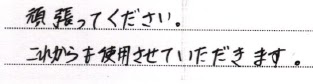 頑張ってください。
これからも使用させていただきます。